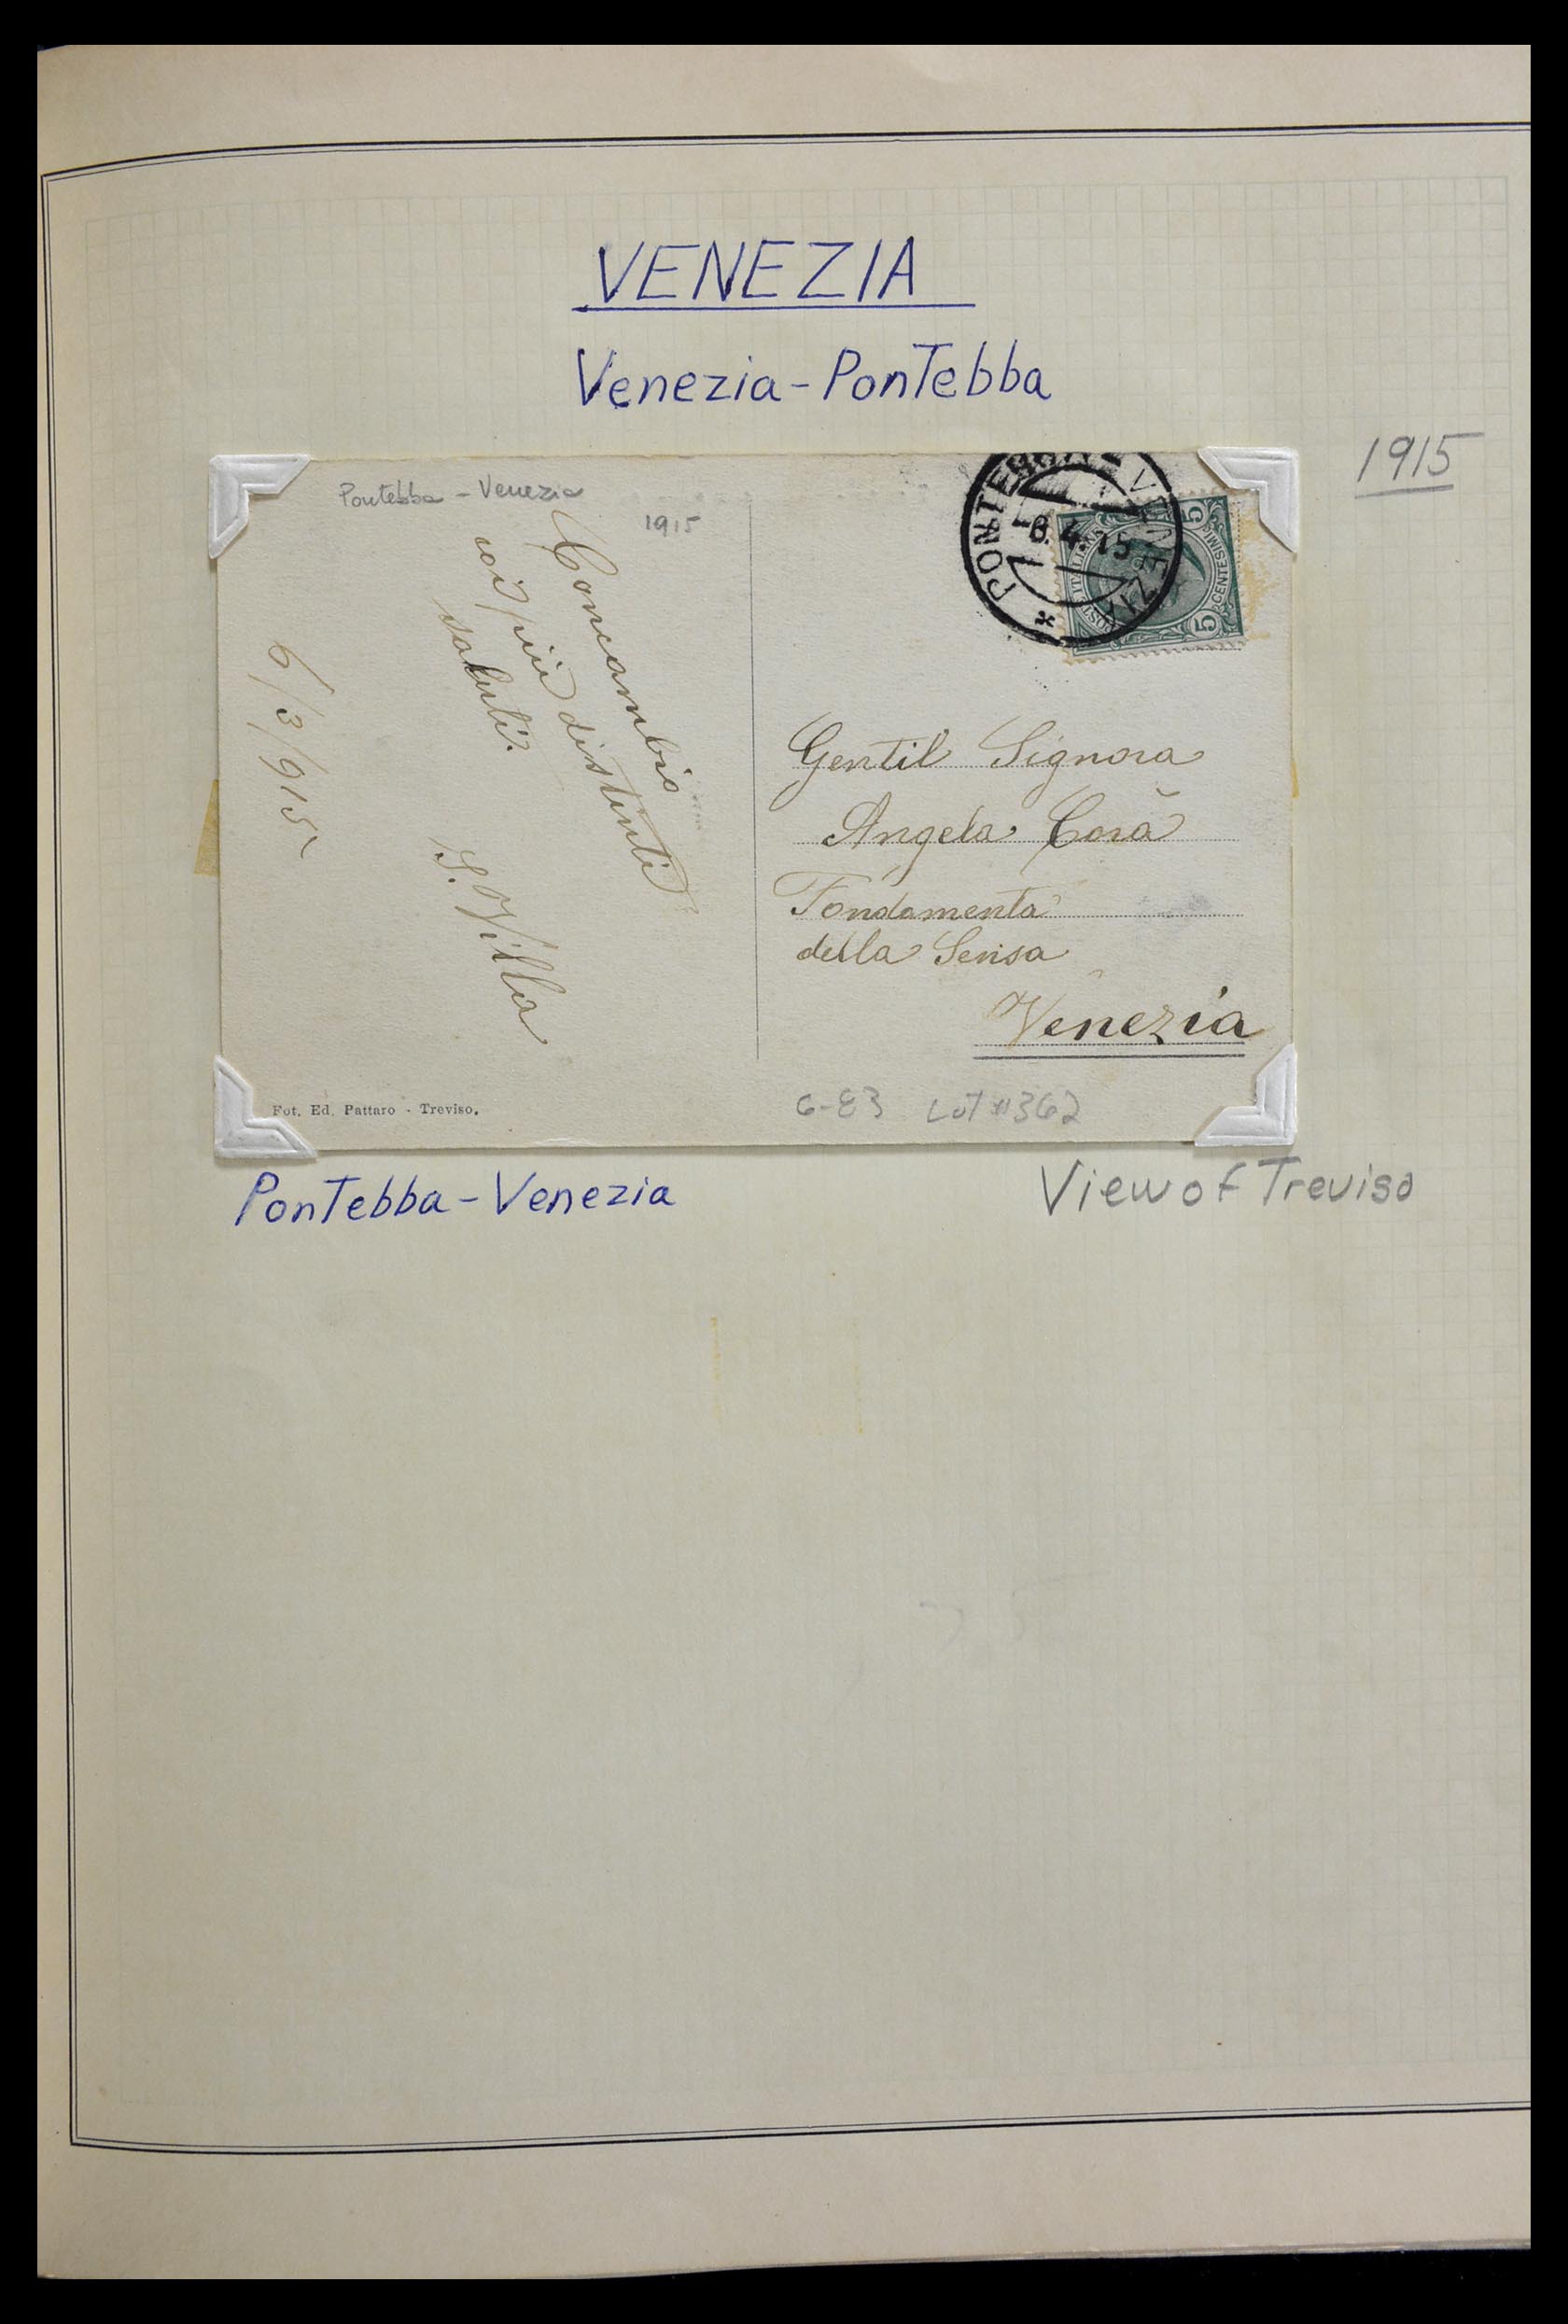 VENEZIA
Venezia-PonTebba
1915
Pontebba - Venezia
1915
Concambio
coi più distinti
saluti.
S. Villa
6/3/915
VENEZIA
-6.4.15
*
POSTE ITALIANE
5 CENTESIMI 5
Gentil Signora
Angela Corà
Fondamenta
della Sensa
Venezia
Fot. Ed. Pattaro - Treviso.
6-83 Lot #362
PonTebba-Venezia
View of Treviso